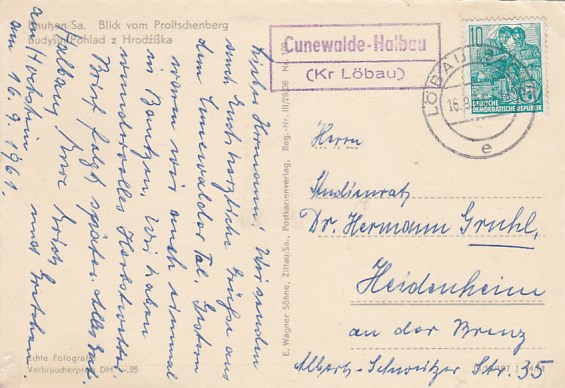 Bautzen/Sa. Blick vom Proitschenberg
Budyšin Pohlad z Hrodžiška
Lieber Hermann! Wir senden
Euch herzliche Grüße aus
dem Cunewalder Tal. Gestern
waren wir auch einmal
in Bautzen. Wir haben
wundervolles Herbstwetter.
Brief folgt später. Alles Gute
Eure Erich und Gretchen.
am 16.9.1961.
Echte Fotografie
Verbraucherpreis DM -.25
E. Wagner Söhne, Zittau/Sa., Postkartenverlag, Reg.-Nr. III/28/38
Cunewalde-Halbau
(Kr Löbau)
LÖBAU
e
10
DEUTSCHE
DEMOKRATISCHE REPUBLIK
Herrn
Studienrat
Dr. Hermann Gruhl,
Heidenheim
an der Brenz
Albert-Schweitzer Str. 35